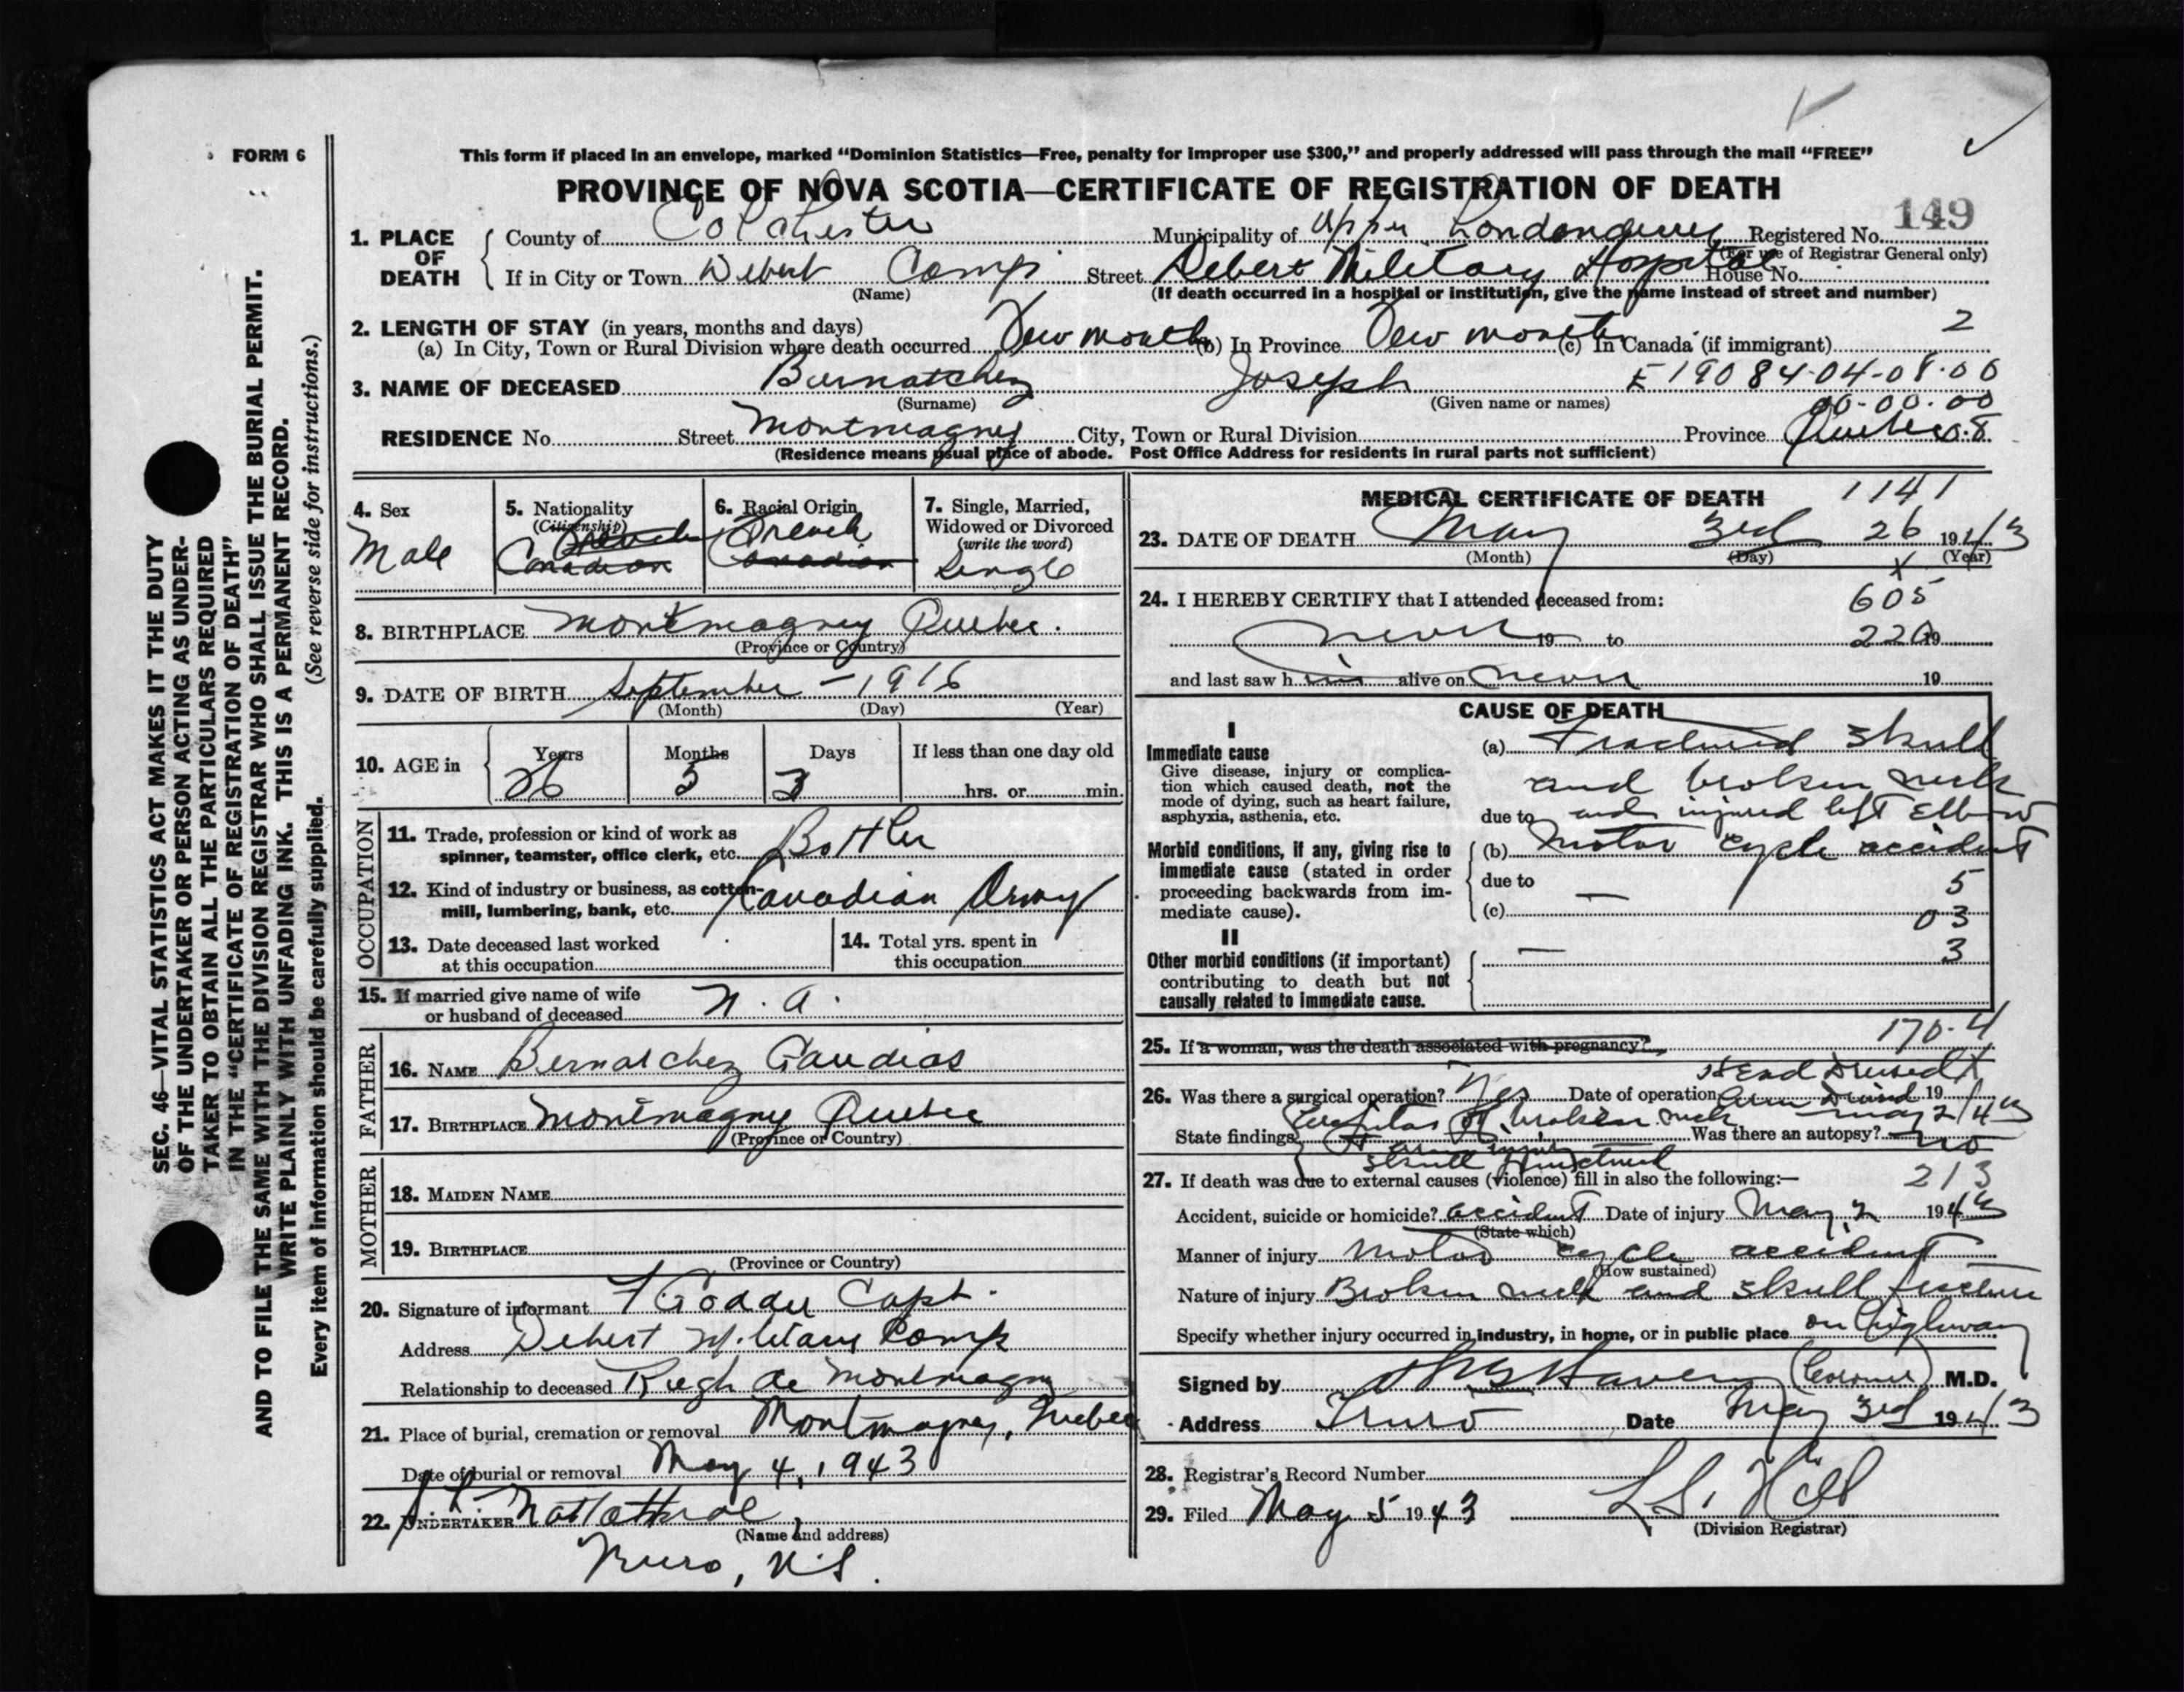 FORM 6
This form if placed in an envelope, marked “Dominion Statistics—Free, penalty for improper use $300,” and properly addressed will pass through the mail “FREE”
PROVINCE OF NOVA SCOTIA—CERTIFICATE OF REGISTRATION OF DEATH
149
1. PLACE OF DEATH
County of Colchester Municipality of Upper Londonderry Registered No.
(For use of Registrar General only)
If in City or Town Debert Camp Street Debert Military Hospital House No.
(Name) (If death occurred in a hospital or institution, give the name instead of street and number)
2. LENGTH OF STAY (in years, months and days) 2
(a) In City, Town or Rural Division where death occurred Few months (b) In Province Few months (c) In Canada (if immigrant)
3. NAME OF DECEASED Bernatchez Joseph E 19084-04-08-00
(Surname) (Given name or names) 00-00-00
RESIDENCE No. Street Montmagny City, Town or Rural Division Province Quebec 0.8
(Residence means usual place of abode. Post Office Address for residents in rural parts not sufficient)
4. Sex
Male
5. Nationality
(Citizenship)
French
Canadian
6. Racial Origin
French
Canadian
7. Single, Married,
Widowed or Divorced
(write the word)
Single
8. BIRTHPLACE Montmagny Quebec.
(Province or Country)
9. DATE OF BIRTH September - 1916
(Month) (Day) (Year)
10. AGE in Years Months Days If less than one day old
26 3 hrs. or min.
OCCUPATION
11. Trade, profession or kind of work as
spinner, teamster, office clerk, etc. Bottler
12. Kind of industry or business, as cotton-
mill, lumbering, bank, etc. Canadian Army
13. Date deceased last worked
at this occupation
14. Total yrs. spent in
this occupation
15. If married give name of wife
or husband of deceased N. A.
FATHER
16. NAME Bernatchez Gaudias
17. BIRTHPLACE Montmagny Quebec
(Province or Country)
MOTHER
18. MAIDEN NAME
19. BIRTHPLACE
(Province or Country)
20. Signature of informant Capt.
Address Debert Military Camp
Relationship to deceased de Montmagny
21. Place of burial, cremation or removal Montmagny, Quebec
Date of burial or removal May 4, 1943
22. UNDERTAKER
(Name and address)
Truro, N.S.
MEDICAL CERTIFICATE OF DEATH 1141
23. DATE OF DEATH May 3rd 26 1943
(Month) (Day) (Year)
x
24. I HEREBY CERTIFY that I attended deceased from: 605
never 19 to 220 19
and last saw him alive on never 19
CAUSE OF DEATH
I
Immediate cause
Give disease, injury or complica-
tion which caused death, not the
mode of dying, such as heart failure,
asphyxia, asthenia, etc.
(a) Fractured skull
and broken neck
due to and injured left Elbow
Morbid conditions, if any, giving rise to
immediate cause (stated in order
proceeding backwards from im-
mediate cause).
(b) Motor cycle accident
due to 5
(c) — 03
II
Other morbid conditions (if important)
contributing to death but not
causally related to immediate cause.
— 3
170-4
25. If a woman, was the death associated with pregnancy?
Head Dressed X
26. Was there a surgical operation? Yes Date of operation 19
May 2/43
State findings broken neck Was there an autopsy? no
skull fractured
27. If death was due to external causes (violence) fill in also the following:— 213
Accident, suicide or homicide? accident Date of injury May 2 1943
(State which)
Manner of injury Motor cycle accident
(How sustained)
Nature of injury Broken neck and skull fracture
Specify whether injury occurred in industry, in home, or in public place on highway
Signed by (Coroner) M.D.
Address Truro Date May 3rd 1943
28. Registrar's Record Number
29. Filed May 5 1943 L.S. Hill
(Division Registrar)
SEC. 46—VITAL STATISTICS ACT MAKES IT THE DUTY
OF THE UNDERTAKER OR PERSON ACTING AS UNDER-
TAKER TO OBTAIN ALL THE PARTICULARS REQUIRED
IN THE “CERTIFICATE OF REGISTRATION OF DEATH”
AND TO FILE THE SAME WITH THE DIVISION REGISTRAR WHO SHALL ISSUE THE BURIAL PERMIT.
WRITE PLAINLY WITH UNFADING INK. THIS IS A PERMANENT RECORD.
Every item of information should be carefully supplied. (See reverse side for instructions.)